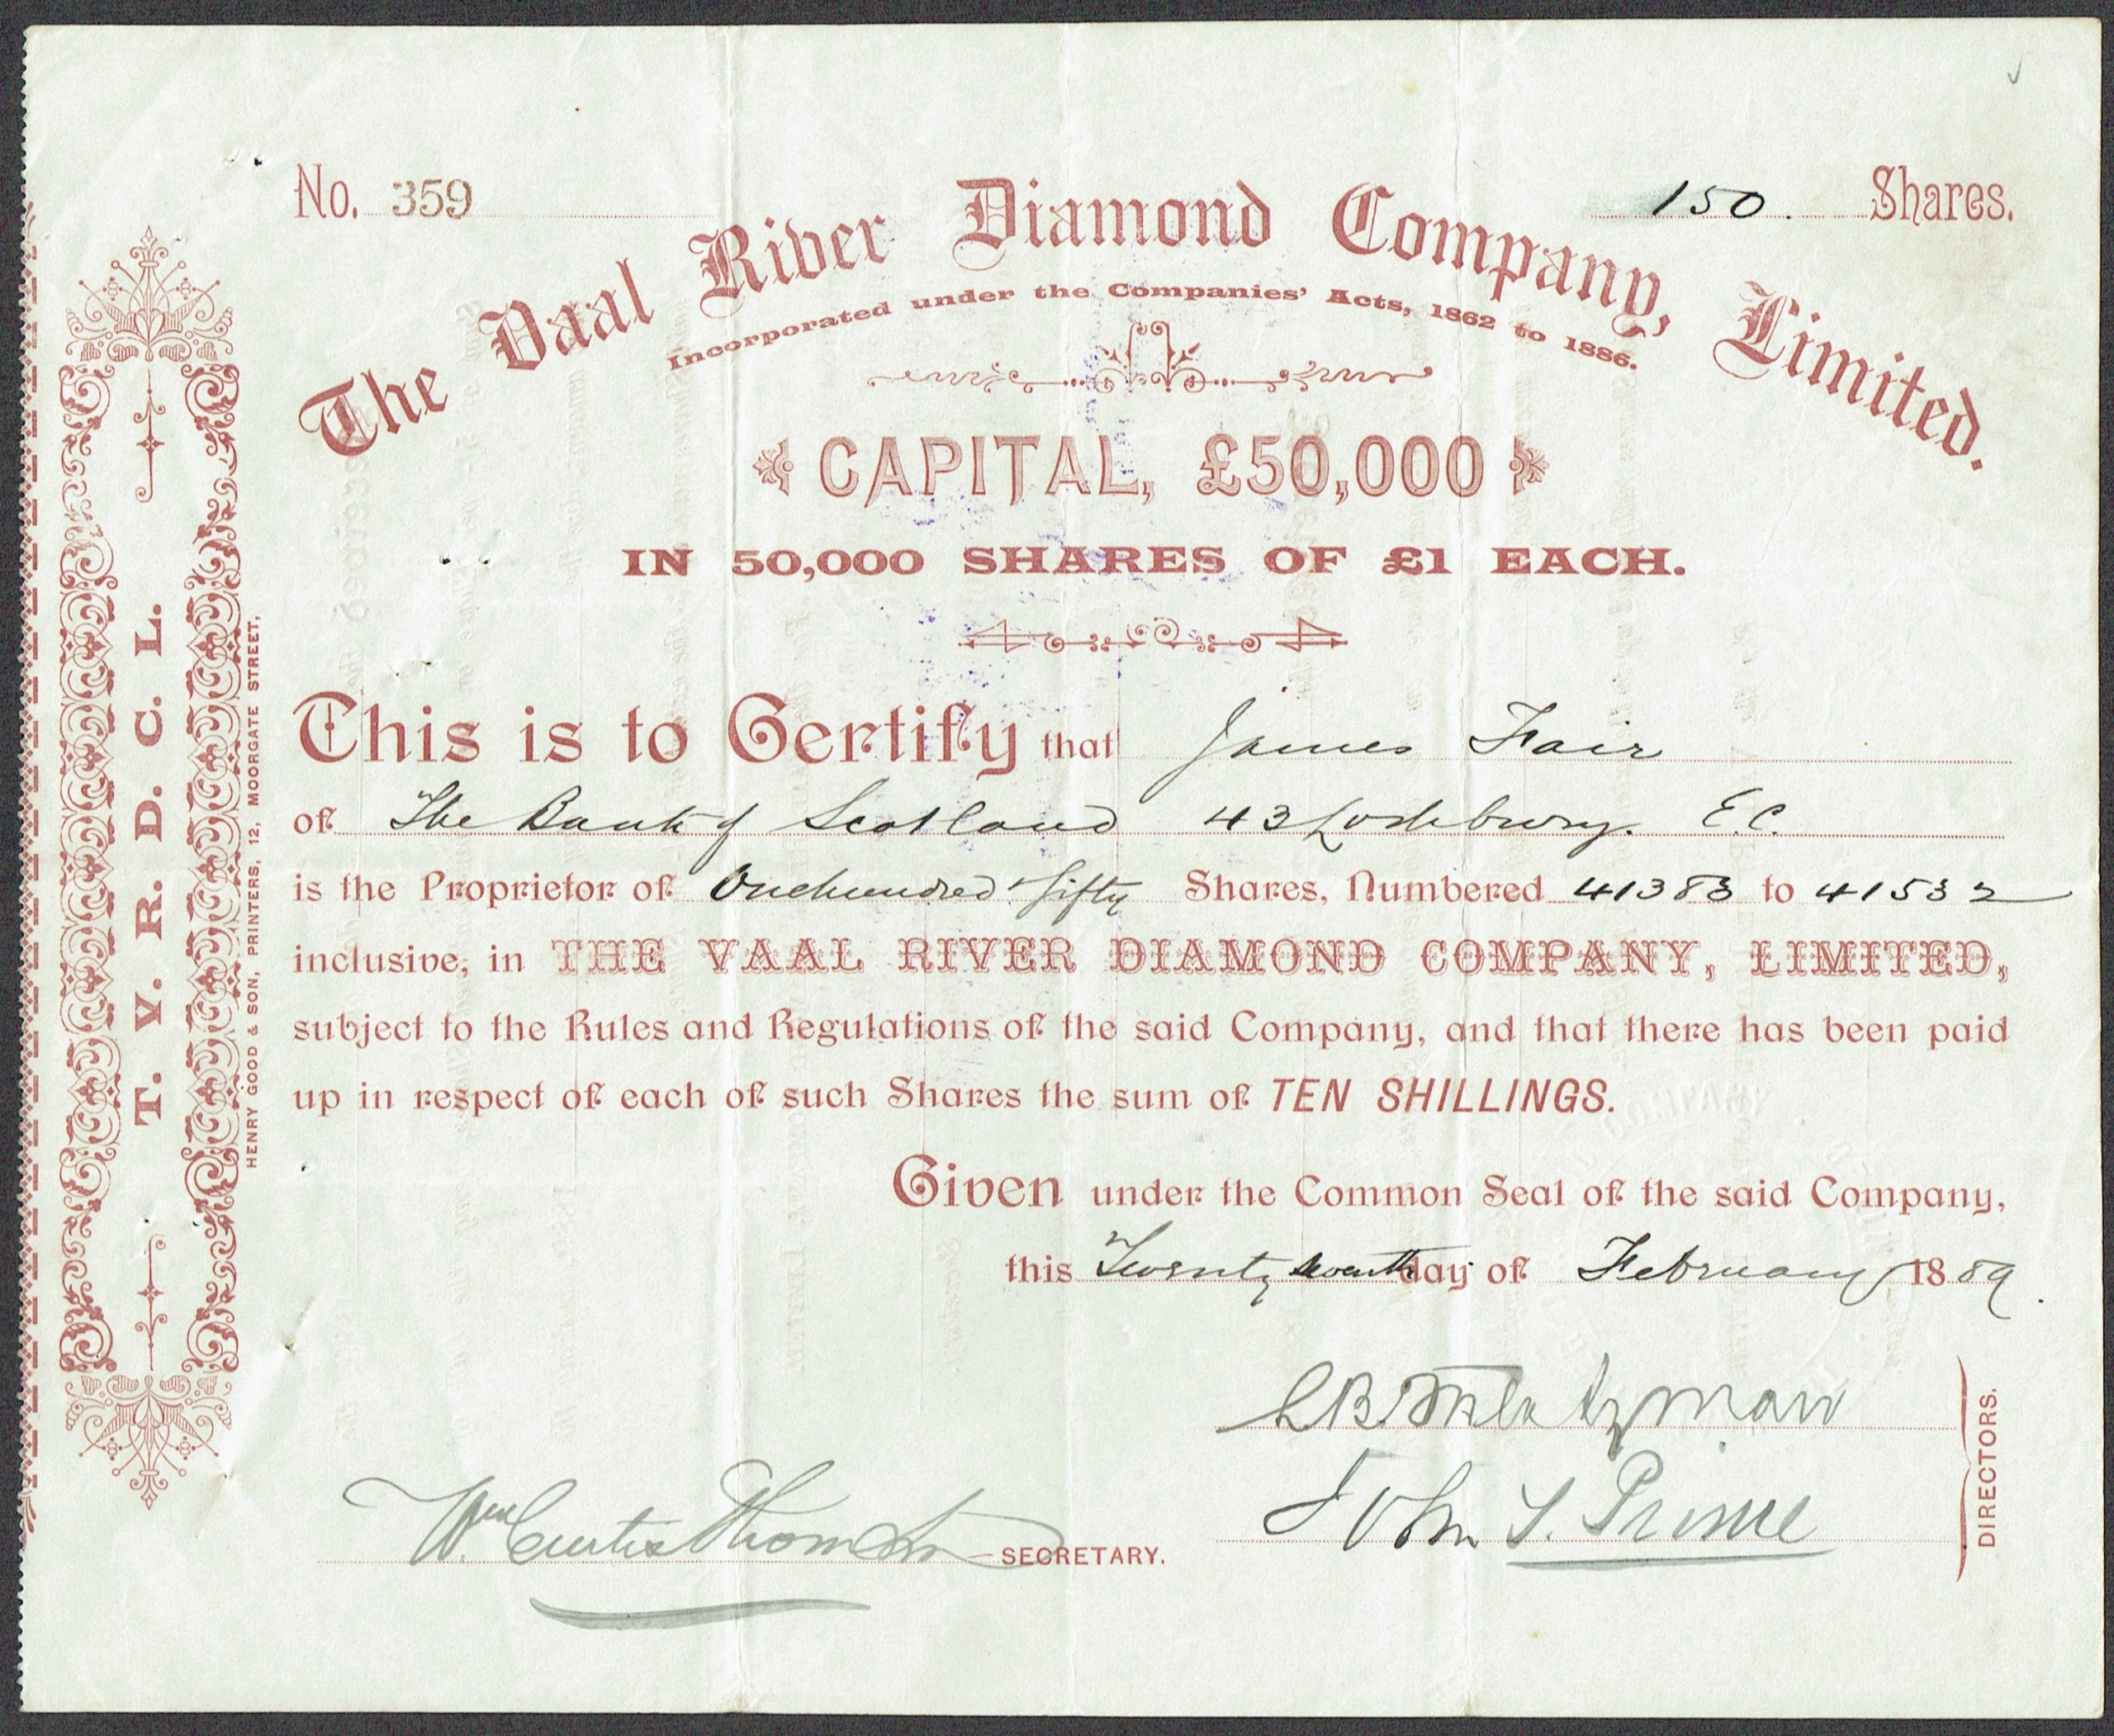 No. 359
150. Shares.
The Vaal River Diamond Company, Limited.
Incorporated under the Companies' Acts, 1862 to 1886.
CAPITAL, £50,000
IN 50,000 SHARES OF £1 EACH.
This is to Certify that James Fair
of The Bank of Scotland 43 Lothbury. E.C.
is the Proprietor of One hundred & fifty Shares, Numbered 41383 to 41532
inclusive, in THE VAAL RIVER DIAMOND COMPANY, LIMITED,
subject to the Rules and Regulations of the said Company, and that there has been paid
up in respect of each of such Shares the sum of TEN SHILLINGS.
Given under the Common Seal of the said Company,
this Twenty seventh day of February 1889.
John S. Prince
DIRECTORS.
Wm Curtis Thomson SECRETARY.
T. V. R. D. C. L.
HENRY GOOD & SON, PRINTERS, 12, MOORGATE STREET,